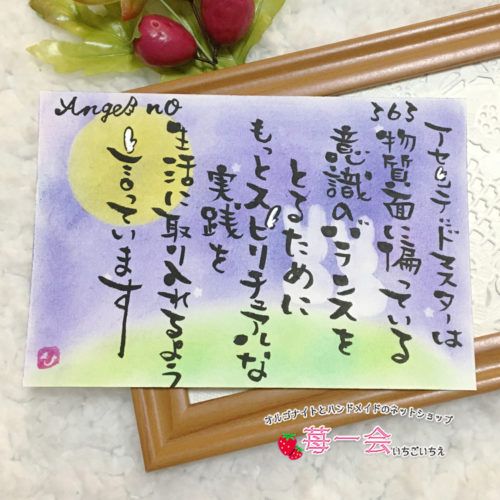 Angel no
363
アセンテッドマスターは
物質面に偏っている
意識のバランスを
とるために
もっとスピリチュアルな
実践を
生活に取り入れるよう
言っています
オルゴナイトとハンドメイドのネットショップ
苺一会 いちごいちえ